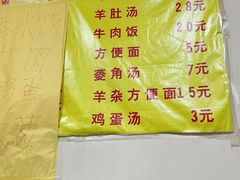 羊肚汤 28元
牛肉饭 20元
方便面 5元
菱角汤 7元
羊杂方便面15元
鸡蛋汤 3元